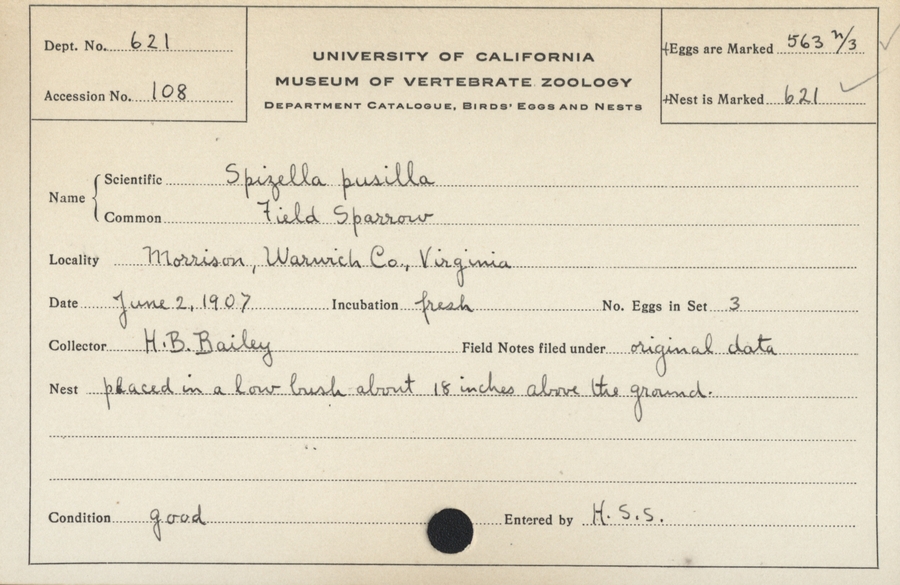 Dept. No. 621
Accession No. 108
UNIVERSITY OF CALIFORNIA
MUSEUM OF VERTEBRATE ZOOLOGY
DEPARTMENT CATALOGUE, BIRDS' EGGS AND NESTS
Eggs are Marked 563 n/3
Nest is Marked 621
Name
Scientific Spizella pusilla
Common Field Sparrow
Locality Morrison, Warwich Co., Virginia
Date June 2, 1907 Incubation fresh No. Eggs in Set 3
Collector H.B. Bailey Field Notes filed under original data
Nest placed in a low bush about 18 inches above the ground.
Condition good Entered by H.S.S.